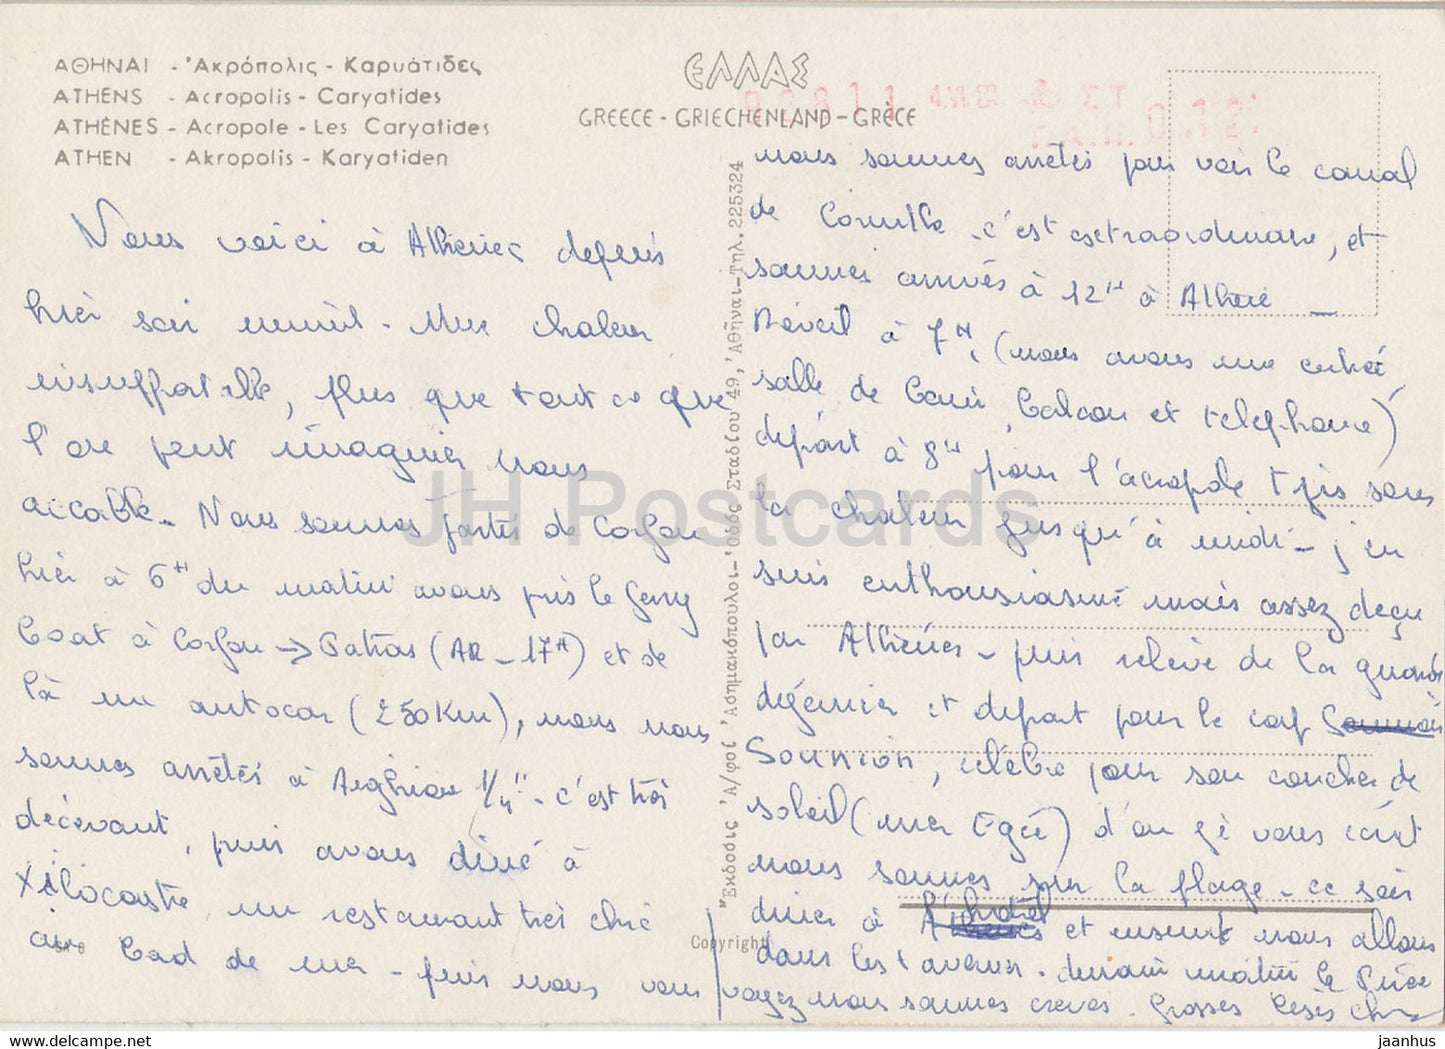 ΑΘΗΝΑΙ - 'Ακρόπολις - Καρυάτιδες
ATHENS - Acropolis - Caryatides
ATHÈNES - Acropole - Les Caryatides
ATHEN - Akropolis - Karyatiden
ΕΛΛΑΣ
GREECE - GRIECHENLAND - GRÈCE
02811 4.VII ΣΤ 012
Nous voici à Athènes depuis
hier soir minuit - Une chaleur
insupportable, plus que tout ce que
l'on peut imaginer nous
accable. Nous sommes partis de Corfou
hier à 6H du matin avons pris le ferry
boat à Corfou → Patras (AR - 17H) et de
là un autocar (250Km), nous nous
sommes arrêtés à 1/4H - c'est très
décevant, puis avons dîné à
Xilocastre un restaurant très chic
au bord de mer - puis nous
nous sommes arrêtés pour voir le canal
de Corinthe - c'est extraordinaire, et
sommes arrivés à 12H à Athènes
Réveil à 7H, (nous avons une entrée,
salle de bain, balcon et téléphone)
départ à 8H pour l'acropole + sous
la chaleur jusqu'à midi - j'en
suis enthousiasmé mais assez déçu
par Athènes - puis relève de la garde
déjeuner et départ pour le cap
Sounion, célèbre pour son coucher de
soleil (mer Egée) d'où je vous écris
nous sommes sur la plage - ce soir
diner à l'hotel et ensuite nous allons
dans les tavernes - demain matin le Pirée
voyez nous sommes crevés. Grosses bises
"Έκδοσις 'Α/φοί 'Ασημακόπουλοι-'Οδός Σταδίου 49, 'Αθῆναι-Τηλ. 225324
Copyright
JH Postcards
jaanhus
www.hippostcard.com